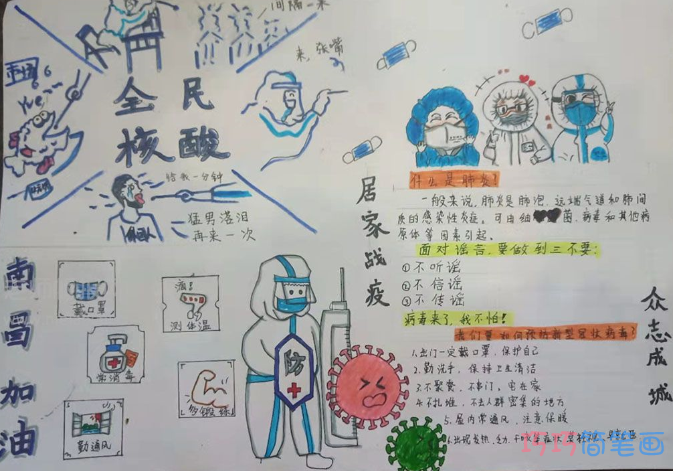 间隔一米
来，张嘴
yue
全民
核酸
给我一分钟
猛男落泪
再来一次
南昌加油
戴口罩
测体温
常消毒
勤通风
防
居家战疫
什么是肺炎?
一般来说，肺炎是肺泡、远端气道和肺间
质的感染性炎症。可由细菌、病毒和其他病
原体等因素引起。
面对谣言，要做到三不要:
①不听谣
②不信谣
③不传谣
病毒来了，我不怕!
我们要如何预防新型冠状病毒?
1.出门一定戴口罩，保护自己
2.勤洗手，保持卫生清洁
3.不聚餐，不串门，宅在家
4.不扎堆，不去人群密集的地方
5.屋内常通风，注意保暖
众志成城
1515简笔画